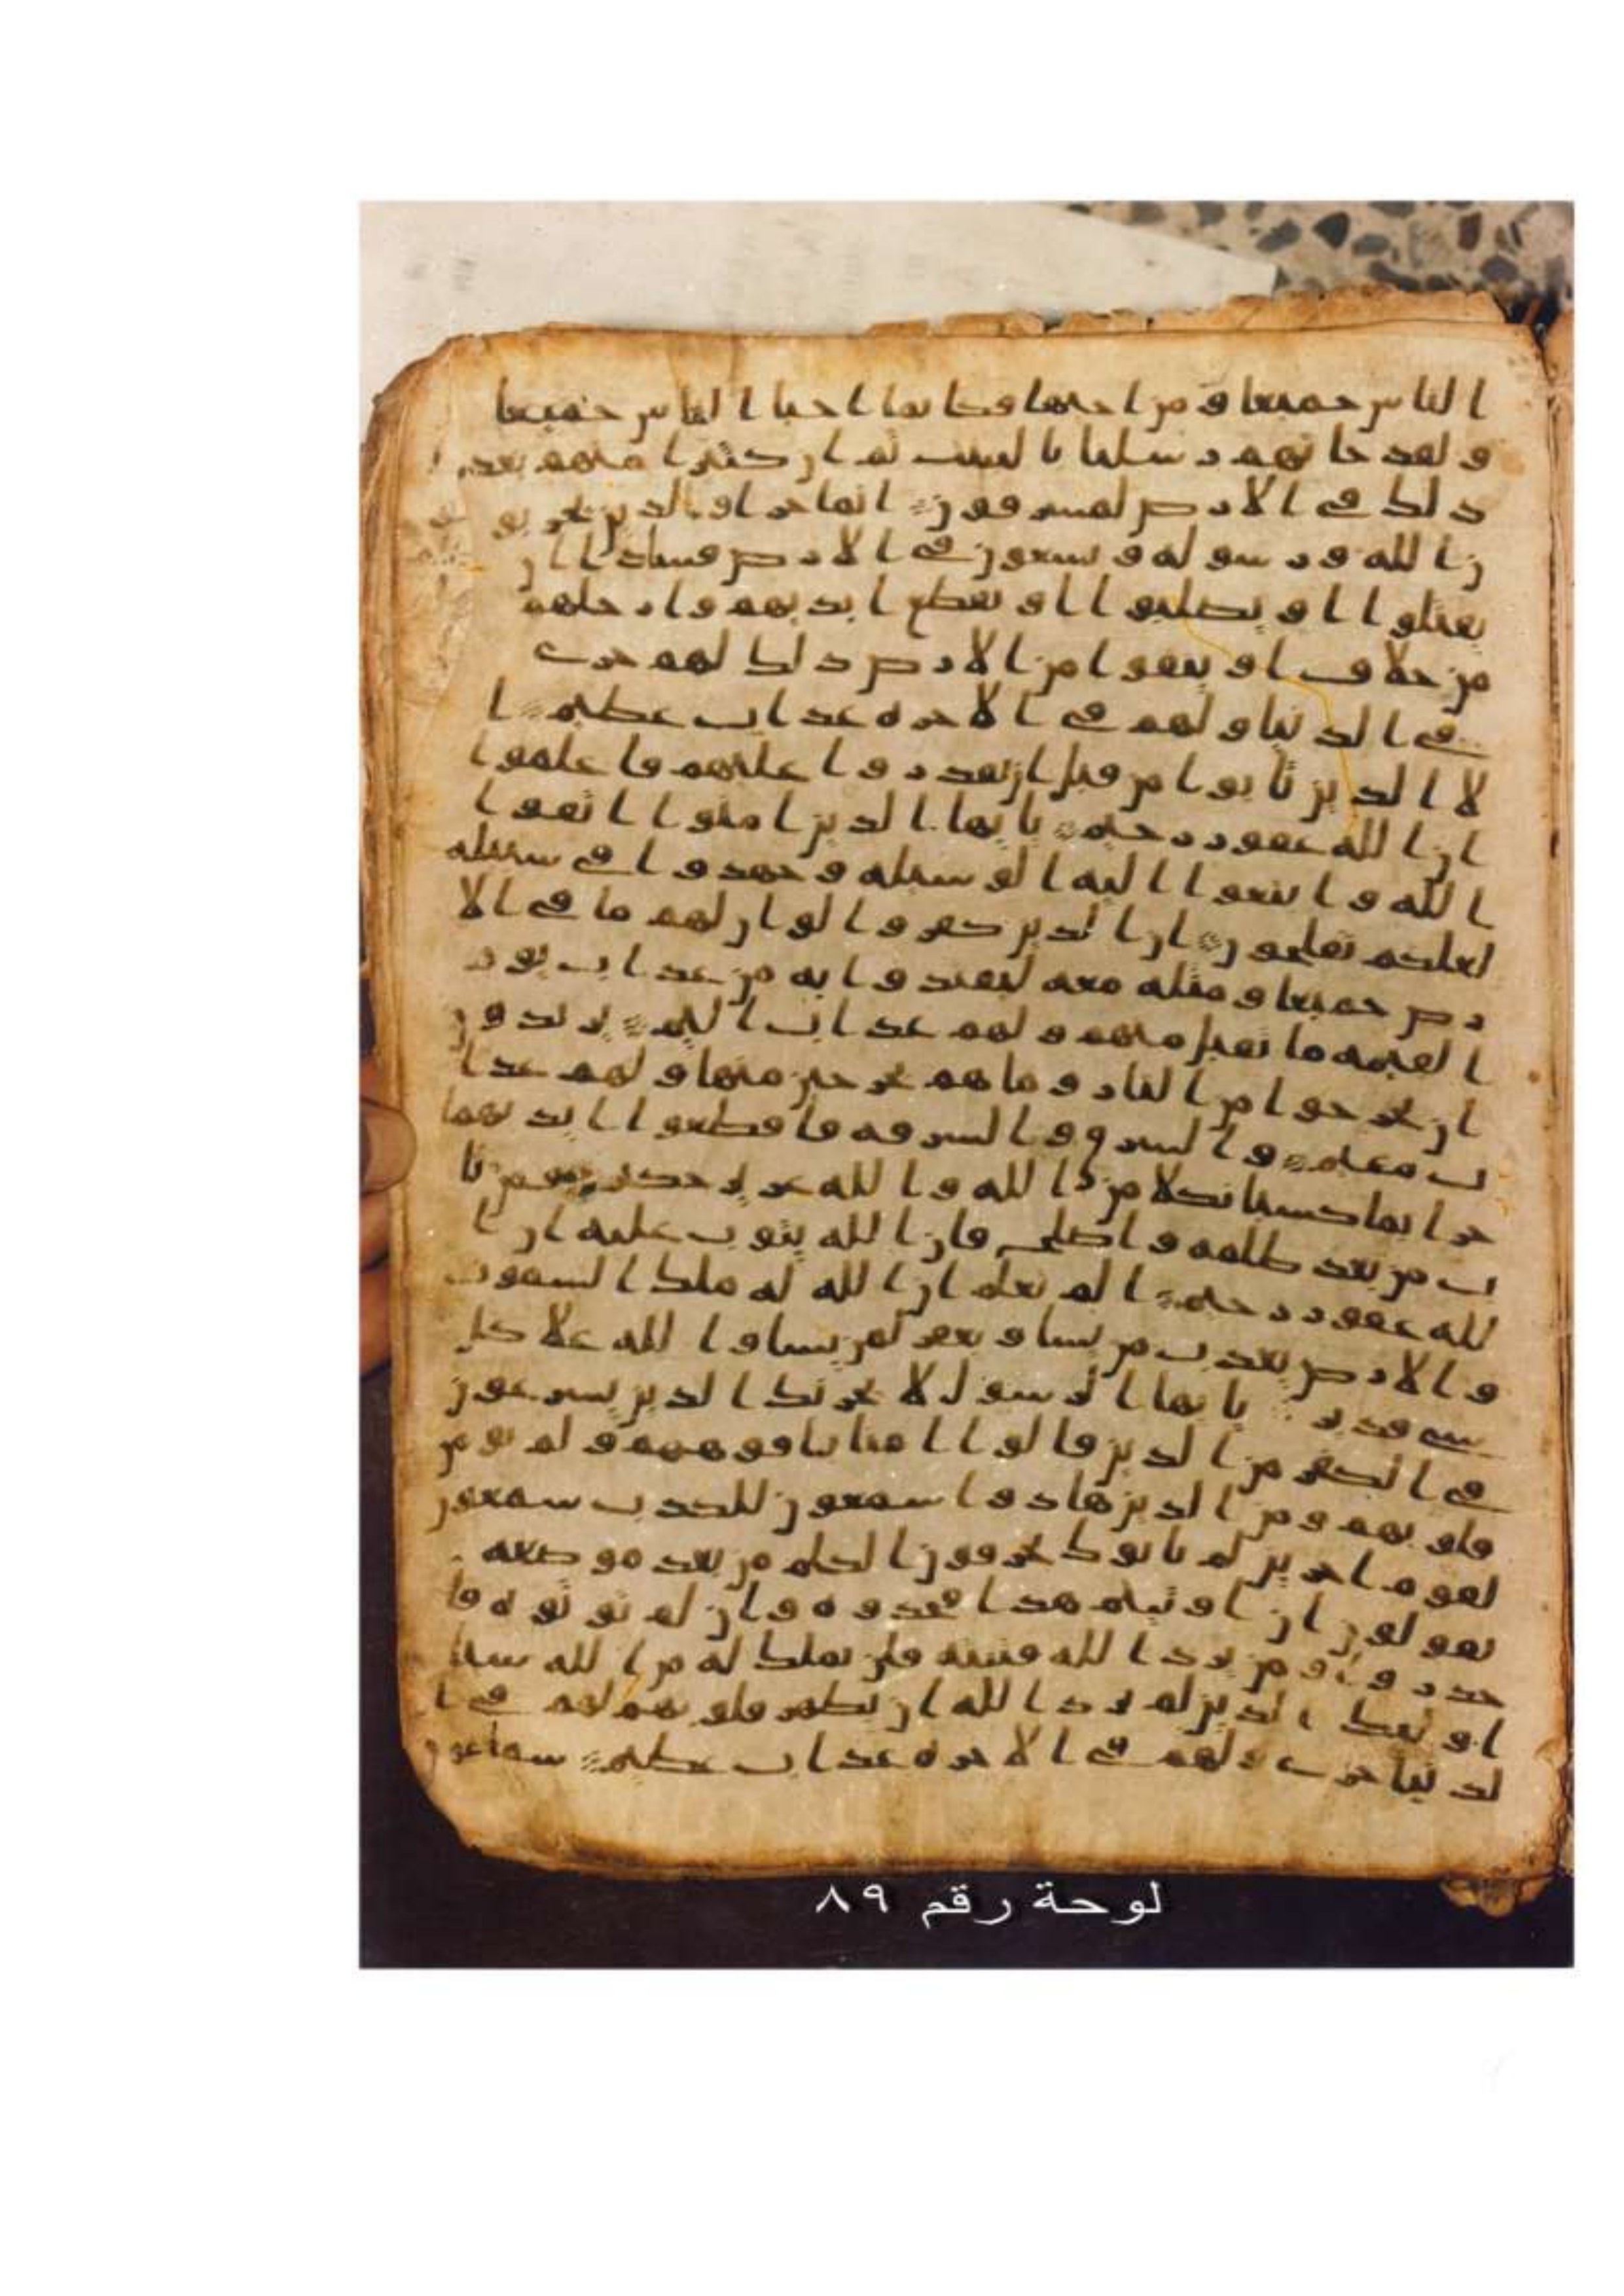 ا لناس جميعا و من ا حيها فكا نما ا حيا ا لناس جميعا
و لقد جا تهم ر سلنا با لبينت ثم ا ن كثيرا منهم بعد
ذ لك في ا لا ر ض لمسر فو ن ا نما جز ا و ا لذ ين يحر بو
ن ا لله و ر سو له و يسعو ن في ا لا ر ض فسادا ا ن
يقتلو ا ا و يصلبو ا ا و تقطع ا يد يهم و ا ر جلهم
من خلا ف ا و ينفو ا من ا لا ر ض ذ لك لهم خز ي
في ا لد نيا و لهم في ا لا خر ه عذ ا ب عظيم ا
لا ا لذ ين تا بو ا من قبل ا ن تقد ر و ا عليهم فا علمو ا
ا ن ا لله غفو ر ر حيم يا يها ا لذ ين ا منو ا ا تقو ا
ا لله و ا بتغو ا ا ليه ا لو سيله و جهد و ا في سبيله
لعلكم تفلحو ن ا ن ا لذ ين كفر و ا لو ا ن لهم ما في ا لا
ر ض جميعا و مثله معه ليفتد و ا به من عذ ا ب يو م
ا لقيمه ما تقبل منهم و لهم عذ ا ب ا ليم ير يد و ن
ا ن يخر جو ا من ا لنار و ما هم بخر جين منها و لهم عذ ا
ب مقيم و ا لسر ق و ا لسر قه فا قطعو ا ا يد يهما
جز ا بما كسبا نكلا من ا لله و ا لله عز يز حكيم فمن تا
ب من بعد ظلمه و ا صلح فا ن ا لله يتو ب عليه ا ن ا
لله غفو ر ر حيم ا لم تعلم ا ن ا لله له ملك ا لسمو ت
و ا لا ر ض يعذ ب من يسا و يغفر لمن يسا و ا لله علا كل
سي قد ير يا يها ا لر سو ل لا يحز نك ا لذ ين يسر عو ن
في ا لكفر من ا لذ ين قا لو ا ا منا با فو ههم و لم تو من
قلو بهم و من ا لذ ين هاد و ا سمعو ن للكذ ب سمعو ن
لقو م ا خر ين لم يا تو ك يحر فو ن ا لكلم من بعد مو ضعه
يقو لو ن ا ن ا و تيتم هذ ا فخذ و ه و ا ن لم تو تو ه فا
حذ ر و ا و من ير د ا لله فتنته فلن تملك له من ا لله سيا
ا و ليك ا لذ ين لم ير د ا لله ا ن يطهر قلو بهم لهم في ا
لد نيا خز ي و لهم في ا لا خر ه عذ ا ب عظيم سماعو ن
لوحة رقم ٨٩